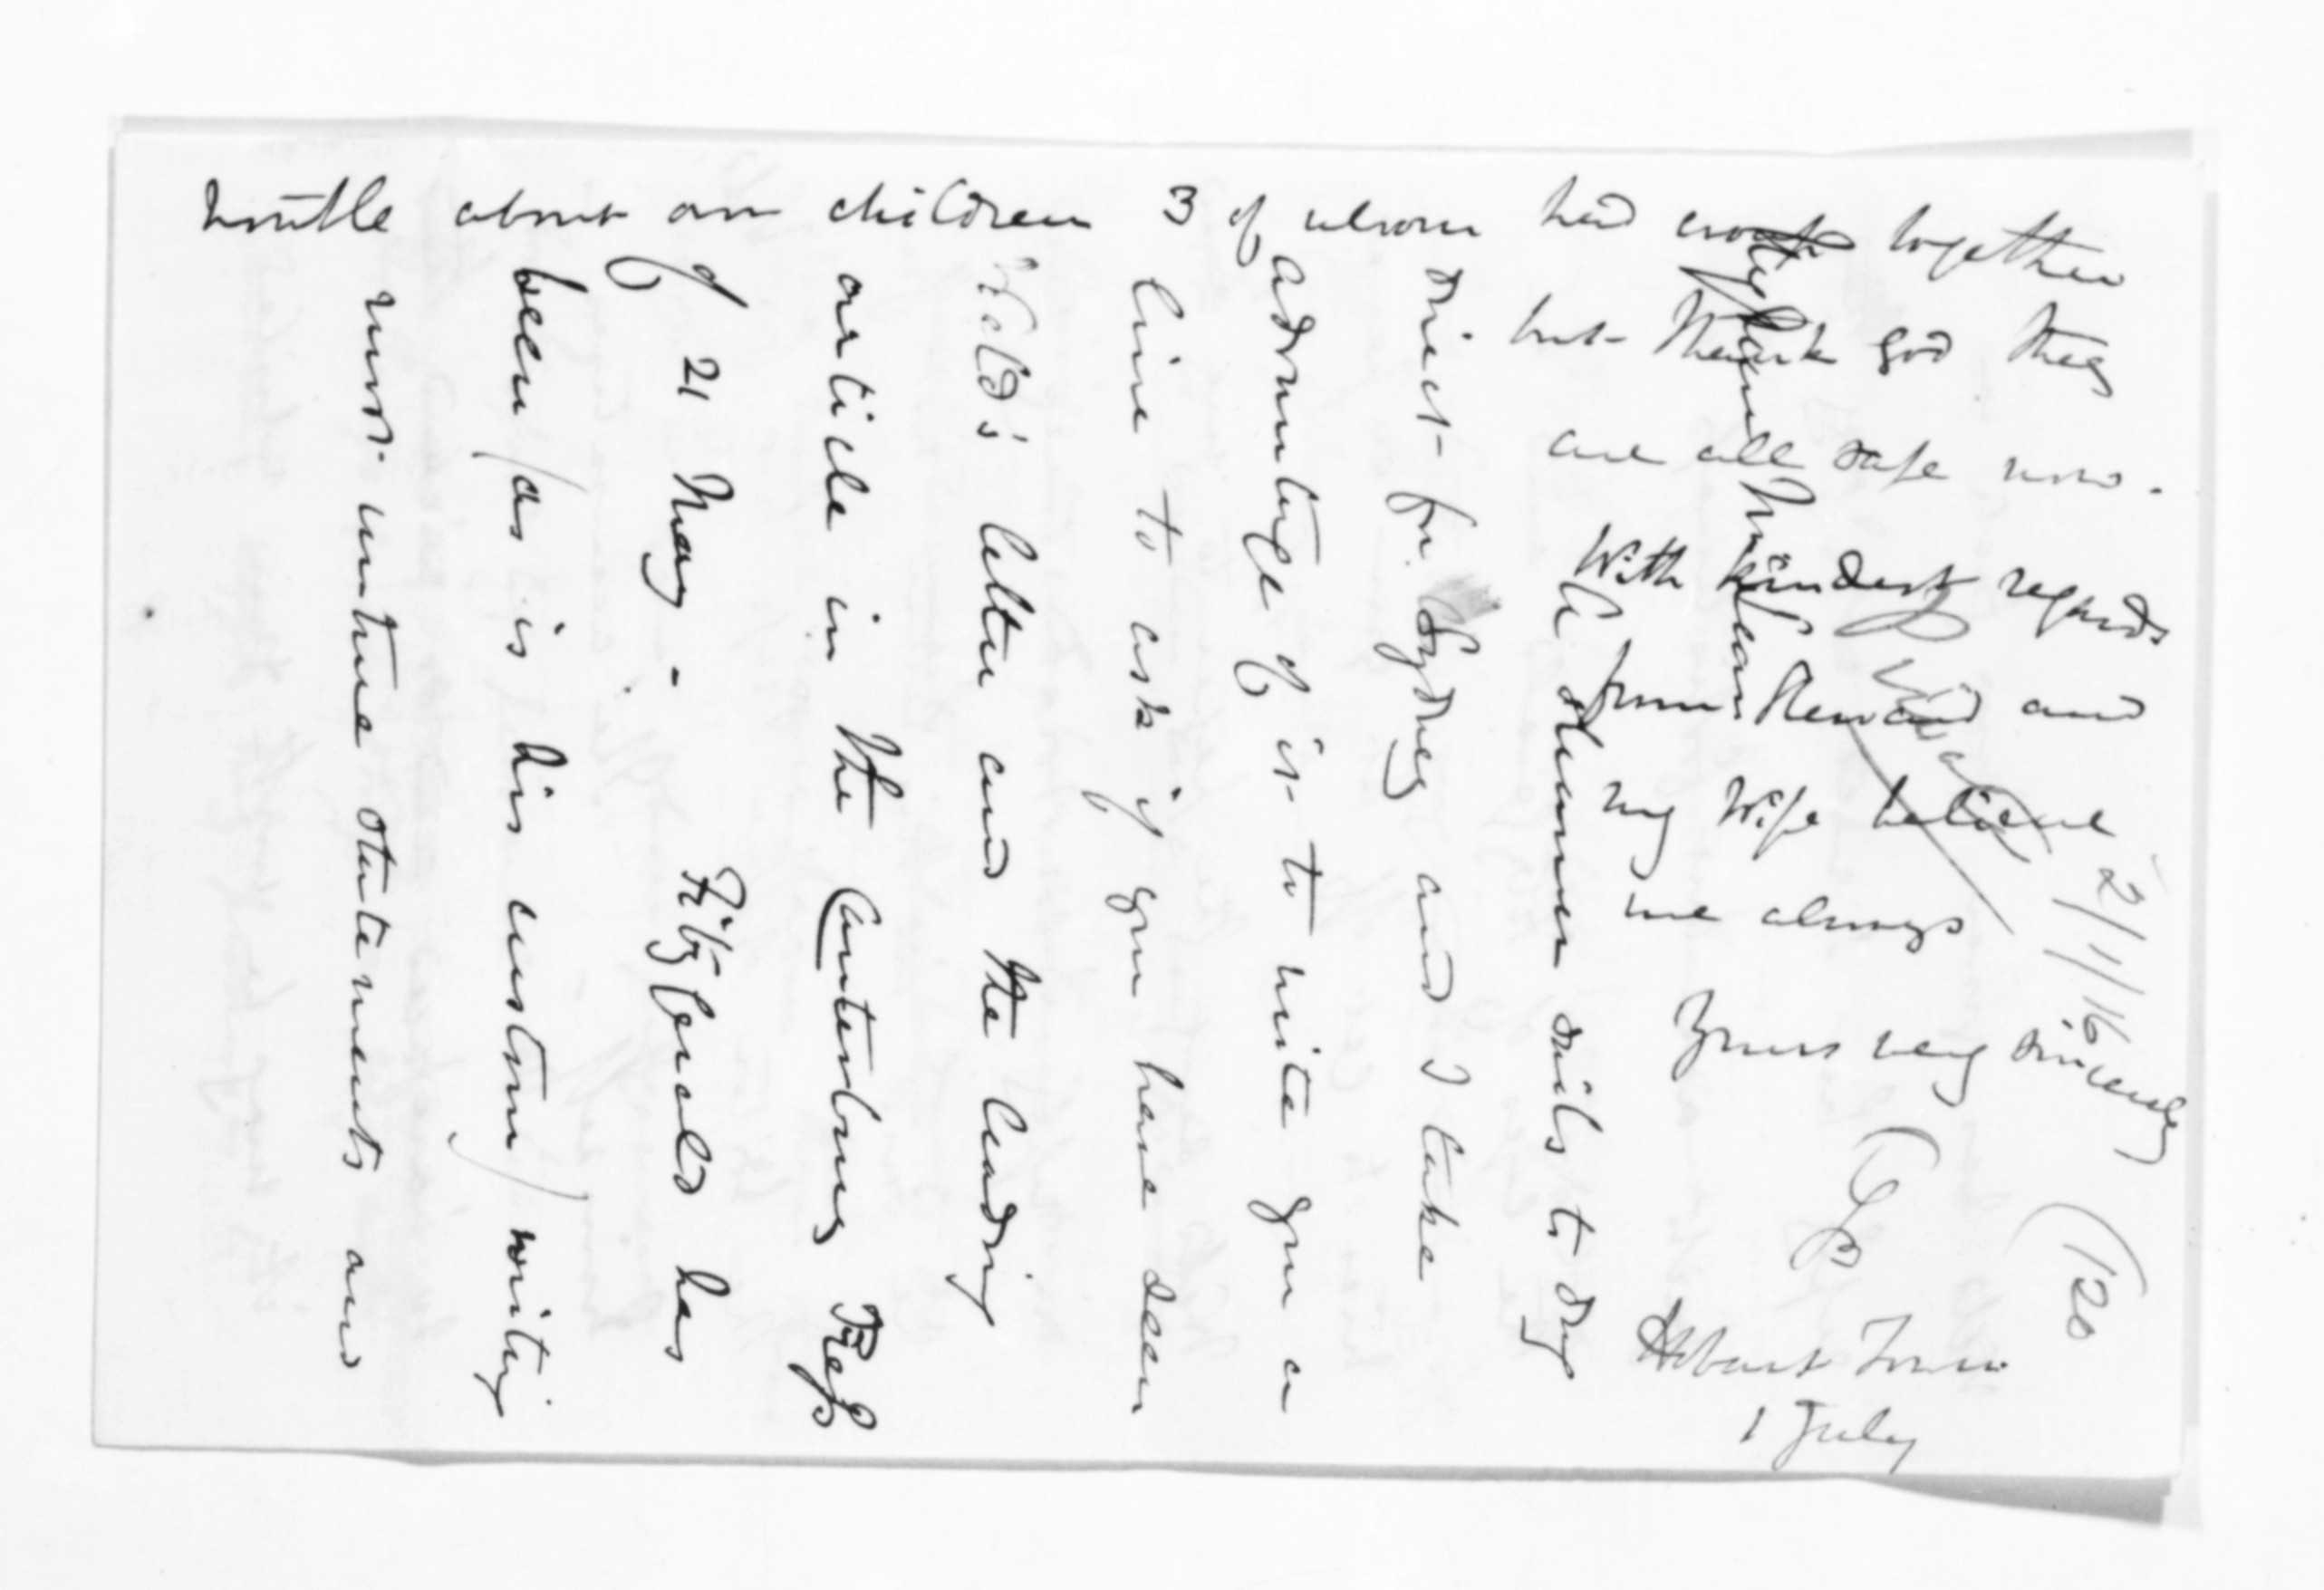 Hobart Town
1 July
My dear McLean
A steamer sails to day
direct for Sydney and I take
advantage of it to write you a
line to ask if you have seen
Weld's letter and the leading
article in the Canterbury Press
of 21 May - Fitzgerald has
been (as is his custom) writing
most untrue statements and
trouble about our children 3 of whom had croup together
but thank god they
are all safe now.
With kindest regards
from and
my wife believe
me always
Yours very sincerely
(120